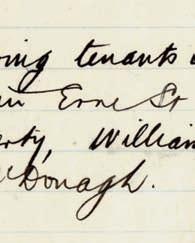 ing tenants
in Erne St
erty, William
Donagh.